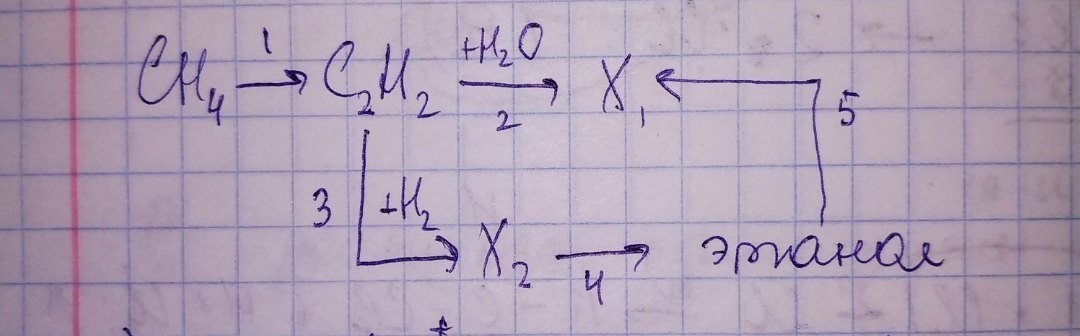 CH₄ 1→ C₂H₂ +H₂O 2→ X₁ ← 5
3 +H₂ → X₂ 4→ этанол